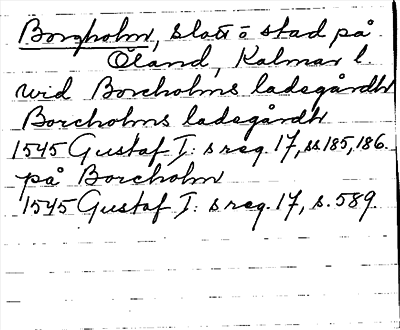 Borgholm, slott o stad på
Öland, Kalmar l.
wid Borcholms ladegårdh
Borcholms ladegårdh
1545 Gustaf I: s reg. 17, ss 185, 186.
på Borcholm
1545 Gustaf I: s reg. 17, s. 589.